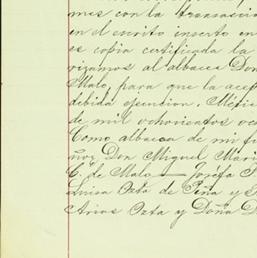 mes con la transacción
en el escrito inserto en
es copia certificada la
rizamos al albacea Don
Malo, para que la acep
debida ejecucion. Méxic
de mil ochocientos oc
Como albacea de mi
ñor Don Miguel Mari
C. de Malo — Josefa
Luisa Osta de Peña y
Arias Osta y Doña D